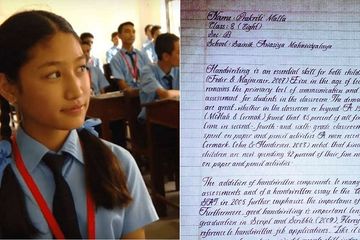 Name: Prakriti Malla
Class: 8 (Eight)
Sec: B
School: Sainik Awasiya Mahavidyalaya
Handwriting is an essential skill for both child
(Feder & Majnemer, 2007) Even in the age of
remains the primary tool of communication and
assessment for students in the classroom. The deman
are great, whether in the classroom or beyond. A
(McHale & Cermak) found that 85 percent of all fin
time in second, fourth and sixth-grade classroom
spent on paper and pencil activities. A more recen
Cermak, 2008) noted that
children are now spending 42 percent of their fine m
on paper and pencil activities
The addition of handwritten components to many
assessments and of a handwritten essay to the
SAT in 2005 further emphasizes the importance of
Furthermore, good handwriting is important long
graduation in
reference to handwritten job applications. Like it